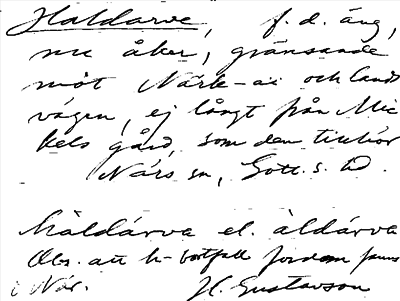 Haldarve, f. d. äng,
nu åker, gränsande
mot Närk-ar och lands
vägen, ej långt från Mic
kels gård, som den tillhör
Närs sn, Gotl. s. hd.
haldárva el. àldárva
Obs. att h- bortfall fordom fanns
i När. H. Gustavson